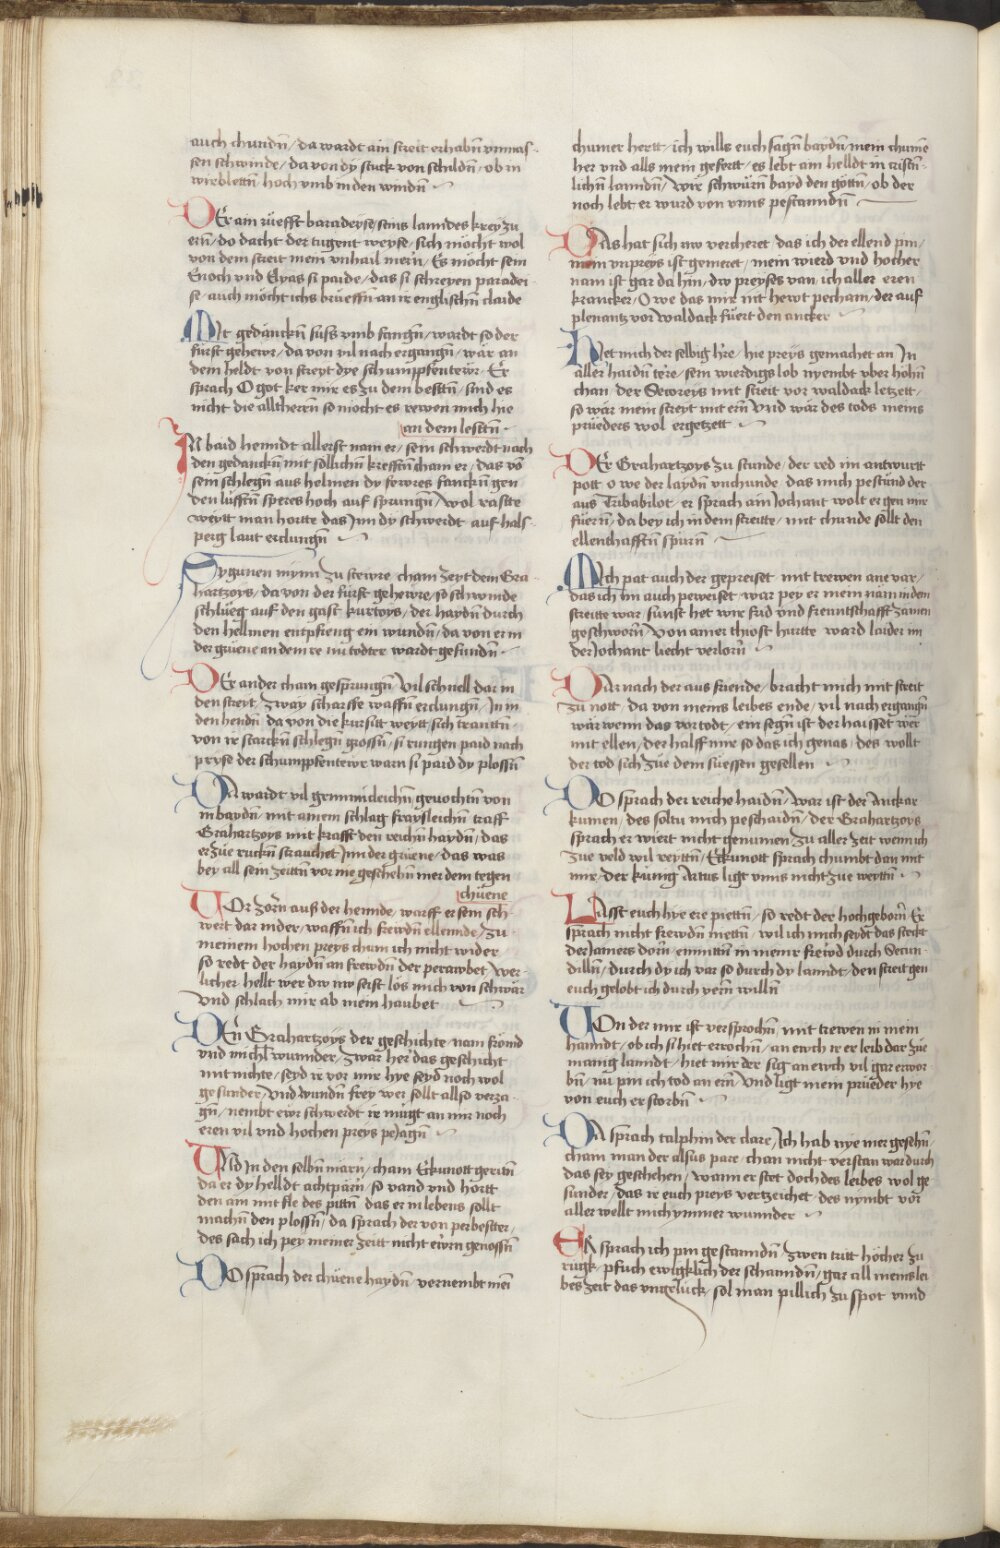 auch chundñ / da wardt ain streit erhabñ vnmas
sen schwinde / da von dy stuck von schildñ / ob in
wirblettñ hoch vmb in den windñ
DEr ain rüefft baradeyse / seins lanndes krey zu
ern / do dacht der tugent weyse / sich möcht wol
von dem streit mein vnhail mern / Es möcht sein
Enoch vnd Elyas si paide / das si schreyen paradei
se / auch möcht ichs brüeffñ an ir englischñ claide
MIt gedänckñ suss vmb fangñ / wardt so der
fürst gehewr / da von vil nach ergangñ / war an
dem heldt von streyt dye schumppfentewr / Er
sprach O got ker mir es zu dem bestñ / sind es
nicht die alltherñ so möcht es rewen mich hie
an dem lestñ
IN baid henndt allerst nam er / sein schwerdt nach
den gedanckñ mit söllichñ kreffftñ cham er / das von
sein schlegñ aus helmen dy fewres fanckñ gen
den lüfftñ speres hoch auf sprungñ / wol raste
weytt man hortte das Jnn dy schwerdt auf hals
perg laut erclungñ
SYgunen mynn zu stewre / cham zeyt dem Gra
hartzoys / da von der fürst gehewre / so schwinde
schlüeg auf den gast kurtoys / der haydñ durch
den hellmen entpfieng ein wundñ / da von er in
der grüene an dem re nu todter wardt gefundñ
DEr ander cham gesprungñ / vil schnell dar in
den streyt / zway scharffe waffñ erclungñ / Jn in
den hendñ da von die kursitt weytt sich tranttñ
von ir starckñ schlegñ grossñ / si rungen paid nach
pryse der schumppfentewr warn si paid dy plossñ
DA wardt vil grymmicleichñ geuochtñ von
in baydñ / mit ainem schlag fraysleichñ traff
Grahartzoys mit krafft den reichñ haydñ / das
er züe ruckñ strauchet Jnn der grüene / das was
bey all sein zeittñ vor nie geschehñ mer dem tegen
chüene
VOr zorñ auß der hennde / warff er sein sch
wert dar nider / waffñ ich frewdñ ellennde / zu
meinem hochen preys chum ich nicht wider
so redt der haydñ an frewdñ der perawbet / wer
licher hellt wer dw nw seist lös mich von schwär
vnd schlach mir ab mein haubet
DEn Grahartzoys der geschichte / nam frömd
vnd michl wunnder / zwar her das geschicht
mit nichte / seyd ir vor mir hye seyd noch wol
gesunder / vnd wundñ frey wer sollt allso verza
gñ / nembt ewr schwerdt ir mügt an mir noch
eren vil vnd hochen preys peJagñ
VNd Jn den selbñ märñ / cham Eckunott geritñ
da er dy helldt achtparñ / so vand vnd hörtt
den ain mit fle des pittñ das er in lebens sollt
machñ den plossñ / da sprach der von perbester
des sach ich pey meiner zeitt nicht ewrn genossñ
DO sprach der chüene haydñ / vernembt mein
chumer hertt / ich wills euch sagñ baydñ / mein chume
her vnd alls mein gefertt / es lebt ain helldt in cristñ
lichñ lanndñ / wir schwürñ bayd den göttñ / ob der
noch lebt er wurd von vnns pestanndñ
DAs hat sich nw vercheret / das ich der ellend pin
mein vnpreys ist gemeret / mein wierd vnd hocher
nam ist gar da hin / dw preyses van / ich aller eren
krancker / O we das mir nit hewt pecham / der auf
plenantz vor waldack füert den ancker
HEt mich der selbig hie / hie preys gemachet an Jn
aller haidñ tere / sein wierdigs lob nymbt vber höhñ
chan / der Secoreys mit streit vor waldack letzett
so wär mein streyt mit ern vnd wär des tods meins
prüeders wol ergetzett
DEr Grahartzoys zu stunde / der red im antwurtt
pott o we der laydñ vnchunde / das mich pestund der
aus Tribabilot / er sprach ain Jochant wolt er gen mir
füerñ / da bey ich in dem streitte / mit chunde sollt den
ellenthafftñ spürñ
MIch pat auch der gepreiset / mit trewen ane var
das ich im auch peweiset / war pey er mein nam in dem
streitte war / sunst het wir frid vnd frenntschafft zamen
geschworñ / von ainer thiost hurtte ward laider im
der Jochant liecht verlorñ
DAr nach der aus friende / bracht mich mit streit
zu nott / da von meins leibes ende / vil nach ergangñ
wär wenn das vor todt / ein segñ ist der haisset wer
mit ellen / der halff mir so das ich genas / des wollt
der tod sich züe dem süessen gesellen
DO sprach der reiche haidñ / war ist der Anckar
kumen / des soltu mich peschaidñ / der Grahartzoys
sprach er wiert nicht genumen / zu aller zeit wenn ich
züe veld wil reyttñ / Eckunott sprach chumbt dan mit
mir / der künig Artus ligt vnns nicht züe weyttñ
LAsst euch hye ere piettñ / so redt der hochgeborñ / Er
sprach nicht frewdñ miettñ / wil ich mich seydt das steckt
der Jamers dorñ / enmittñ in meinr frewd durch Secun
dillñ / durch dy ich var so durch dy lanndt / den streit gen
euch gelobt ich durch yern willñ
VOn der mir ist versprochñ / mit trewen in mein
hanndt / ob ich si hiet errochñ / an ewch ir er leib dar züe
manig lanndt / hiet mir der sig an ewch vil gar erwor
bñ / nu pin ich tod an ern / vnd ligt mein prüeder hye
von euch erstorbñ
DA sprach talphin der clare / Jch hab nye mer gesehñ
cham man der alsus pare / chan nicht verstan war durch
das sey geschehen / wann er stet doch des leibes wol ge
sunder / das ir euch preys vertzeichet / des nymbt vor
aller wellt mich ymmer wunnder
ER sprach ich pin gestanndñ / zwen tritt höcher zu
rugk / pfuch ewigklich der schanndñ / gar all meins lei
bes zeit das vngelück / sol man pillich zu spot vnnd